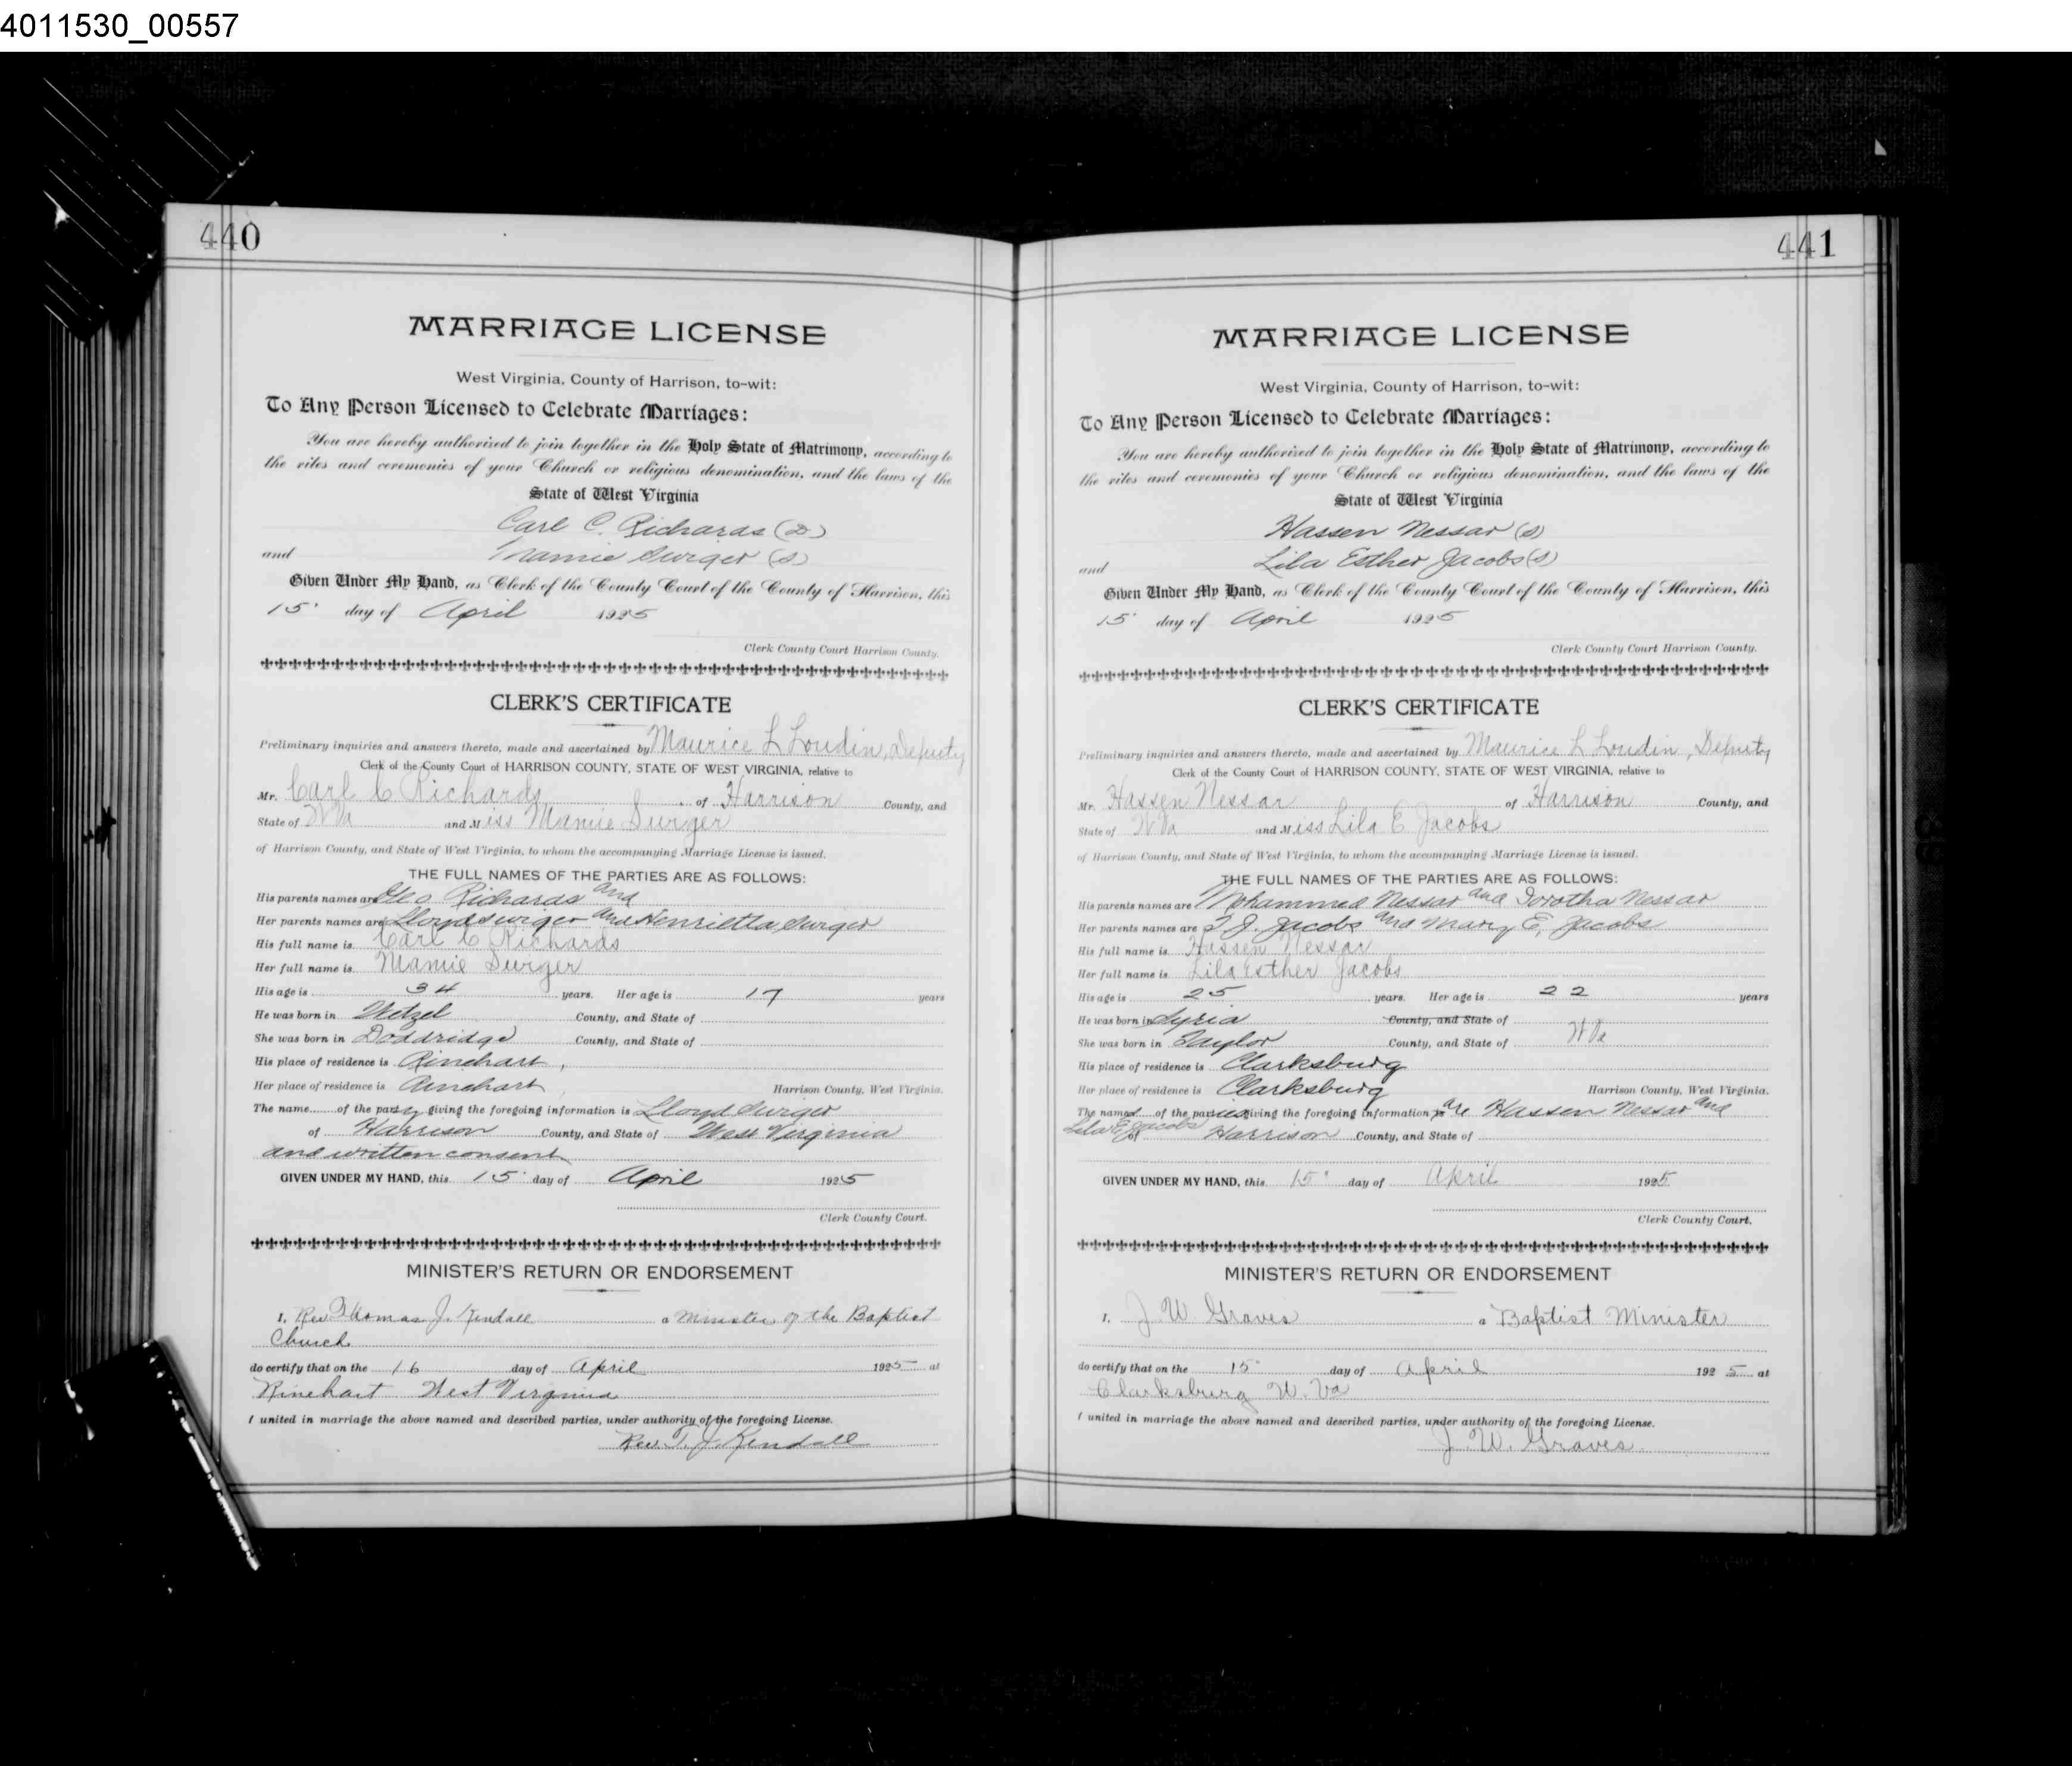 4011530_00557
440
MARRIAGE LICENSE
West Virginia, County of Harrison, to-wit:
To Any Person Licensed to Celebrate Marriages:
You are hereby authorized to join together in the Holy State of Matrimony, according to
the rites and ceremonies of your Church or religious denomination, and the laws of the
State of West Virginia
Carl C. Richards (D)
and Mamie Swiger (S)
Given Under My Hand, as Clerk of the County Court of the County of Harrison, this
15" day of April 1925
Clerk County Court Harrison County.
CLERK'S CERTIFICATE
Preliminary inquiries and answers thereto, made and ascertained by Maurice L Loudin, Deputy
Clerk of the County Court of HARRISON COUNTY, STATE OF WEST VIRGINIA, relative to
Mr. Carl C Richards of Harrison County, and
State of W Va and Miss Mamie Swiger
of Harrison County, and State of West Virginia, to whom the accompanying Marriage License is issued.
THE FULL NAMES OF THE PARTIES ARE AS FOLLOWS:
His parents names are Geo Richards and
Her parents names are Lloyd Swiger and Henrietta Swiger
His full name is Carl C Richards
Her full name is Mamie Swiger
His age is 34 years. Her age is 17 years
He was born in Wetzel County, and State of
She was born in Doddridge County, and State of
His place of residence is Rinehart,
Her place of residence is Rinehart Harrison County, West Virginia.
The name of the party giving the foregoing information is Lloyd Swiger
of Harrison County, and State of West Virginia
and written consent
GIVEN UNDER MY HAND, this 15" day of April 1925
Clerk County Court.
MINISTER'S RETURN OR ENDORSEMENT
I, Rev Thomas J. Kendall a Minister of the Baptist
Church
do certify that on the 16 day of April 1925 at
Rinehart West Virginia
I united in marriage the above named and described parties, under authority of the foregoing License.
Rev. T. J. Kendall
441
MARRIAGE LICENSE
West Virginia, County of Harrison, to-wit:
To Any Person Licensed to Celebrate Marriages:
You are hereby authorized to join together in the Holy State of Matrimony, according to
the rites and ceremonies of your Church or religious denomination, and the laws of the
State of West Virginia
Hassen Nessar (S)
and Lila Esther Jacobs (S)
Given Under My Hand, as Clerk of the County Court of the County of Harrison, this
15" day of April 1925
Clerk County Court Harrison County.
CLERK'S CERTIFICATE
Preliminary inquiries and answers thereto, made and ascertained by Maurice L Loudin, Deputy
Clerk of the County Court of HARRISON COUNTY, STATE OF WEST VIRGINIA, relative to
Mr. Hassen Nessar of Harrison County, and
State of W Va and Miss Lila E Jacobs
of Harrison County, and State of West Virginia, to whom the accompanying Marriage License is issued.
THE FULL NAMES OF THE PARTIES ARE AS FOLLOWS:
His parents names are Mohammed Nessar and Dorotha Nessar
Her parents names are J. Jacobs and Mary E. Jacobs
His full name is Hassen Nessar
Her full name is Lila Esther Jacobs
His age is 25 years. Her age is 22 years
He was born in Syria County, and State of
She was born in Taylor County, and State of W Va
His place of residence is Clarksburg
Her place of residence is Clarksburg Harrison County, West Virginia.
The names of the parties giving the foregoing information are Hassen Nessar and
Lila E Jacobs of Harrison County, and State of
GIVEN UNDER MY HAND, this 15" day of April 1925
Clerk County Court.
MINISTER'S RETURN OR ENDORSEMENT
I, J. W Graves a Baptist Minister
do certify that on the 15" day of April 1925 at
Clarksburg W. Va
I united in marriage the above named and described parties, under authority of the foregoing License.
J. W. Graves